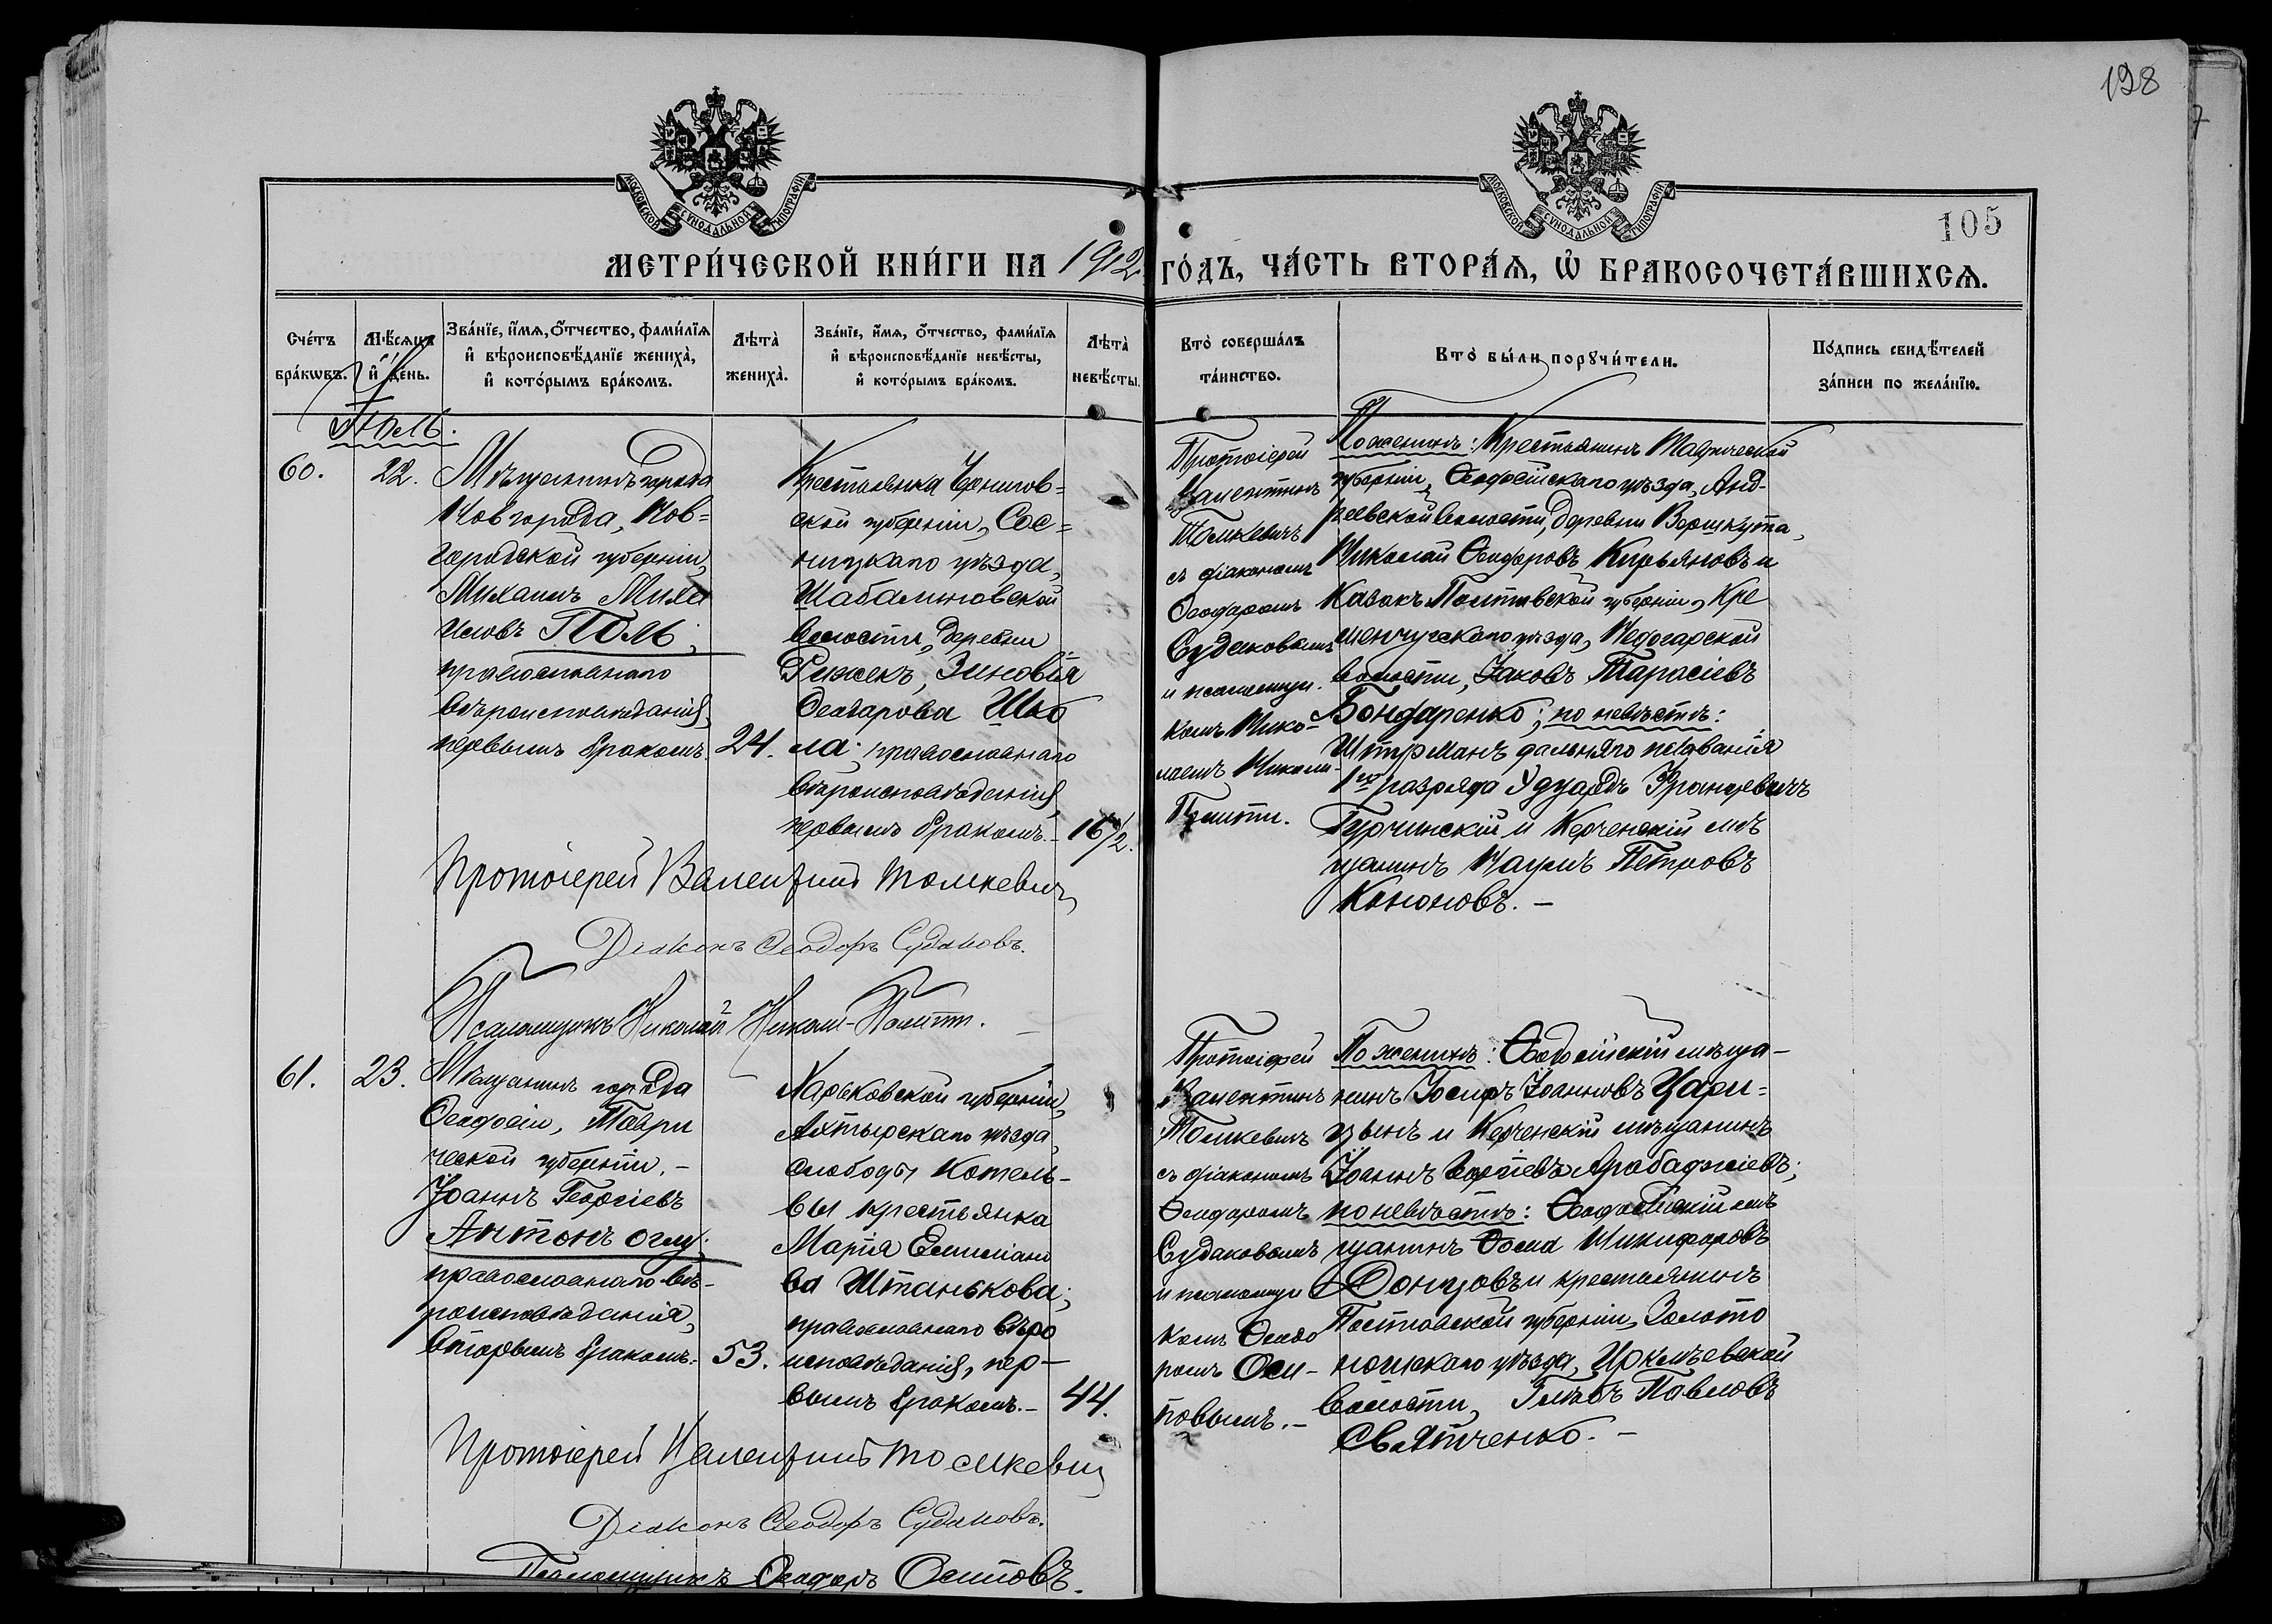 198
105
МОСКОВСКОЙ СѴНОДАЛЬНОЙ ТИПОГРАФІИ
МОСКОВСКОЙ СѴНОДАЛЬНОЙ ТИПОГРАФІИ
МЕТРИ́ЧЕСКОЙ КНИ́ГИ НА 1912 ГО́ДЪ, ЧА́СТЬ ВТОРА́Ѧ, Ѽ БРАКОСОЧЕТА́ВШИХСѦ.
Сче́тъ
бра́кѡвъ.
Мѣ́сѧцъ
и҆ де́нь.
Зва́нїе, и҆́мѧ, ѻ҆́тчество, фами́лїѧ
и҆ вѣроисповѣ́данїе жениха̀,
и҆ кото́рымъ бра́комъ.
Лѣта̀
жениха̀.
Зва́нїе, и҆́мѧ, ѻ҆́тчество, фами́лїѧ
и҆ вѣроисповѣ́данїе невѣ́сты,
и҆ кото́рымъ бра́комъ.
Лѣта̀
невѣ́сты.
Кто̀ соверша́лъ
та́инство.
Кто̀ бы́ли порꙋчи́тели.
По́дпись свидѣ́телей
за́писи по жела́нїю.
Іюль.
60.
22.
Мѣщанинъ города
Новгорода, Нов=
городской губерніи,
Михаилъ Миха
иловъ Поль;
православнаго
вѣроисповѣданія,
первымъ бракомъ.
24.
Крестьянка Чернигов=
ской губерніи, Сос=
ницкаго уѣзда,
Шабалиновской
волости, деревни
Рижекъ, Зиновія
Ѳеодорова Шко
ла; православнаго
вѣроисповѣданія,
первымъ бракомъ.–
16½.
Протоіерей
Валентинъ
Томкевичъ
съ діакономъ
Ѳеодоромъ
Судаковымъ
и псаломщи-
комъ Нико-
лаемъ Николи-
Политти.
По женихѣ: Крестьянинъ Таврической
губерніи, Ѳеодосійскаго уѣзда, Анд-
реевской волости, деревни
Николай Ѳеодоровъ Кирьяновъ и
Казакъ Полтавской губерніи, Кре
менчугскаго уѣзда, Недогарской
волости, Іаковъ Тарасіевъ
Бондаренко; по невѣстѣ:
Штурманъ дальняго плаванія
1го разряда Эдуардъ Францевичъ
Гурчинскій и Керченскій мѣ
щанинъ Наумъ Петровъ
Кононовъ.–
Протоіерей Валентинъ Томкевичъ
Діаконъ Ѳеодоръ Судаковъ.
Псаломщикъ Николай Николи-Политти.
61.
23.
Мѣщанинъ города
Ѳеодосіи, Таври
ческой губерніи,–
Іоаннъ Георгіевъ
Антонъ оглу;
православнаго вѣ-
роисповѣданія,
вторымъ бракомъ.
53.
Харьковской губерніи,
Ахтырскаго уѣзда,
слободы Котель-
вы крестьянка
Марія Емиліано
ва Штанькова;
православнаго вѣро
исповѣданія, пер-
вымъ бракомъ.–
44.
Протоіерей
Валентинъ
Томкевичъ
съ діакономъ
Ѳеодоромъ
Судаковымъ
и псаломщи
комъ Ѳеодо
ромъ Оси-
повымъ.–
По женихѣ: Ѳеодосійскій мѣща-
нинъ Іосифъ Іоанновъ Цари=
цынъ и Керченскій мѣщанинъ
Іоаннъ Георгіевъ Арабаджіевъ;
по невѣстѣ: Ѳеодосійскій мѣ
щанинъ Ѳома Никифоровъ
Донцовъ и крестьянинъ
Полтавской губерніи, Золото
ношскаго уѣзда, Ирклѣевской
волости, Глѣбъ Павловъ
Святченко.–
Протоіерей Валентинъ Томкевичъ
Діаконъ Ѳеодоръ Судаковъ.
Псаломщикъ Ѳеодоръ Осиповъ.